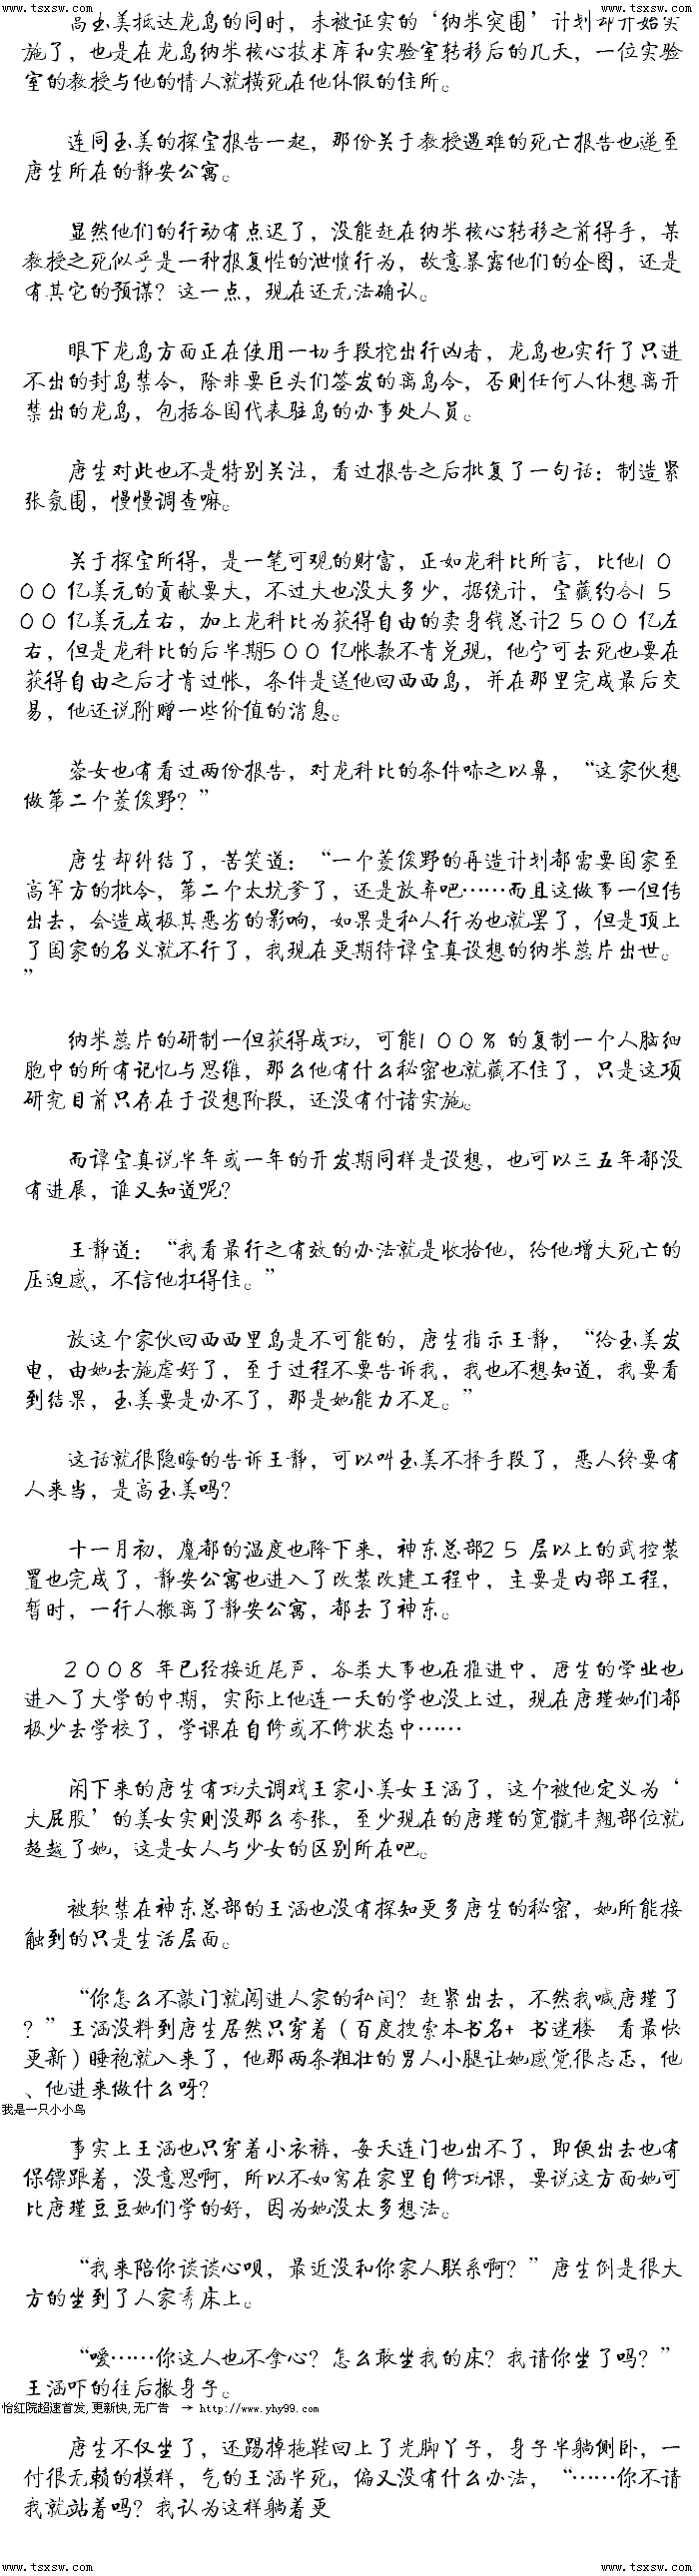 www.tsxsw.com www.tsxsw.com
高玉美抵达龙岛的同时，未被证实的‘纳米突围’计划却开始实
施了，也是在龙岛纳米核心技术库和实验室转移后的几天，一位实验
室的教授与他的情人就横死在他休假的住所。
连同玉美的探宝报告一起，那份关于教授遇难的死亡报告也递至
唐生所在的静安公寓。
显然他们的行动有点迟了，没能赶在纳米核心转移之前得手，某
教授之死似乎是一种报复性的泄愤行为，故意暴露他们的企图，还是
有其它的预谋？这一点，现在还无法确认。
眼下龙岛方面正在使用一切手段挖出行凶者，龙岛也实行了只进
不出的封岛禁令，除非要巨头们签发的离岛令，否则任何人休想离开
禁出的龙岛，包括各国代表驻岛的办事处人员。
唐生对此也不是特别关注，看过报告之后批复了一句话：制造紧
张氛围，慢慢调查嘛。
关于探宝所得，是一笔可观的财富，正如龙科比所言，比他１０
００亿美元的贡献要大，不过大也没大多少，据统计，宝藏约合１５
００亿美元左右，加上龙科比为获得自由的卖身钱总计２５００亿左
右，但是龙科比的后半期５００亿帐款不肯兑现，他宁可去死也要在
获得自由之后才肯过帐，条件是送他回西西岛，并在那里完成最后交
易，他还说附赠一些价值的消息。
蓉女也有看过两份报告，对龙科比的条件哧之以鼻，“这家伙想
做第二个菱俊野？”
唐生却纠结了，苦笑道：“一个菱俊野的再造计划都需要国家至
高军方的批令，第二个太坑爹了，还是放弃吧……而且这做事一但传
出去，会造成极其恶劣的影响，如果是私人行为也就罢了，但是顶上
了国家的名义就不行了，我现在更期待谭宝真设想的纳米蕊片出世。
”
纳米蕊片的研制一但获得成功，可能１００％的复制一个人脑细
胞中的所有记忆与思维，那么他有什么秘密也就藏不住了，只是这项
研究目前只存在于设想阶段，还没有付诸实施。
而谭宝真说半年或一年的开发期同样是设想，也可以三五年都没
有进展，谁又知道呢？
王静道：“我看最行之有效的办法就是收拾他，给他增大死亡的
压迫感，不信他扛得住。”
放这个家伙回西西里岛是不可能的，唐生指示王静，“给玉美发
电，由她去施虐好了，至于过程不要告诉我，我也不想知道，我要看
到结果，玉美要是办不了，那是她能力不足。”
这话就很隐晦的告诉王静，可以叫玉美不择手段了，恶人终要有
人来当，是高玉美吗？
十一月初，魔都的温度也降下来，神东总部２５层以上的武控装
置也完成了，静安公寓也进入了改装改建工程中，主要是内部工程，
暂时，一行人搬离了静安公寓，都去了神东。
２００８年已经接近尾声，各类大事也在推进中，唐生的学业也
进入了大学的中期，实际上他连一天的学也没上过，现在唐瑾她们都
极少去学校了，学课在自修或不修状态中……
闲下来的唐生有功夫调戏王家小美女王涵了，这个被他定义为‘
大屁股’的美女实则没那么夸张，至少现在的唐瑾的宽髋丰翘部位就
超越了她，这是女人与少女的区别所在吧。
被软禁在神东总部的王涵也没有探知更多唐生的秘密，她所能接
触到的只是生活层面。
“你怎么不敲门就闯进人家的私闺？赶紧出去，不然我喊唐瑾了
？”王涵没料到唐生居然只穿着（百度搜索本书名+ 书迷楼 看最快
更新）睡袍就入来了，他那两条粗壮的男人小腿让她感觉很忐忑，他
、他进来做什么呀？
我是一只小小鸟
事实上王涵也只穿着小衣裤，每天连门也出不了，即便出去也有
保镖跟着，没意思啊，所以不如窝在家里自修功课，要说这方面她可
比唐瑾豆豆她们学的好，因为她没太多想法。
“我来陪你谈谈心呗，最近没和你家人联系啊？”唐生倒是很大
方的坐到了人家秀床上。
“嗳……你这人也不拿心？怎么敢坐我的床？我请你坐了吗？”
王涵吓的往后撤身子。
怡红院超速首发，更新快，无广告 → http://www.yhy99.com
唐生不仅坐了，还踢掉拖鞋回上了光脚丫子，身子半躺侧卧，一
付很无赖的模样，气的王涵半死，偏又没有什么办法，“……你不请
我就站着吗？我认为这样躺着更
www.tsxsw.com www.tsxsw.com